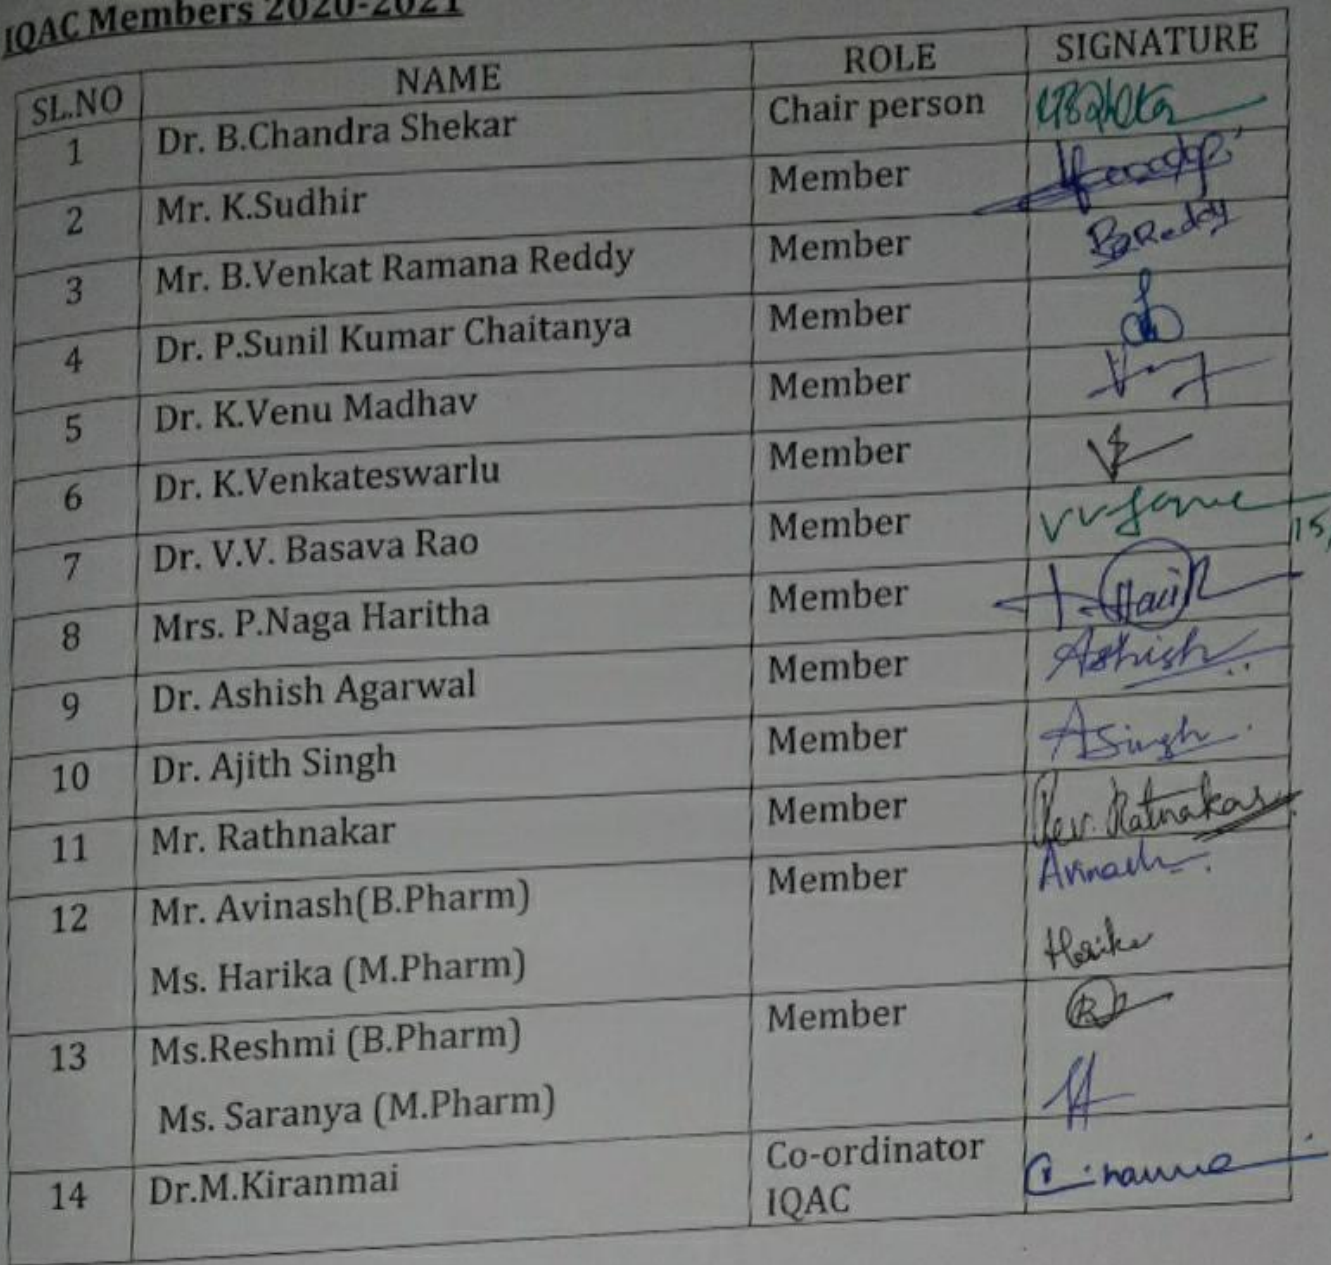 IQAC Members 2020-2021
SL.NO NAME ROLE SIGNATURE
1 Dr. B.Chandra Shekar Chair person
2 Mr. K.Sudhir Member
3 Mr. B.Venkat Ramana Reddy Member BReddy
4 Dr. P.Sunil Kumar Chaitanya Member
5 Dr. K.Venu Madhav Member
6 Dr. K.Venkateswarlu Member
7 Dr. V.V. Basava Rao Member 15,
8 Mrs. P.Naga Haritha Member
9 Dr. Ashish Agarwal Member Ashish
10 Dr. Ajith Singh Member ASingh
11 Mr. Rathnakar Member Rev. Ratnakar
12 Mr. Avinash(B.Pharm) Member Avinash
Ms. Harika (M.Pharm) Harika
13 Ms.Reshmi (B.Pharm) Member
Ms. Saranya (M.Pharm)
14 Dr.M.Kiranmai Co-ordinator
IQAC